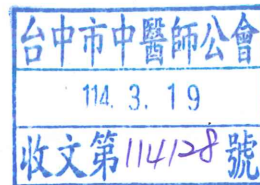 台中市中醫師公會
114. 3. 19
收文第114128號